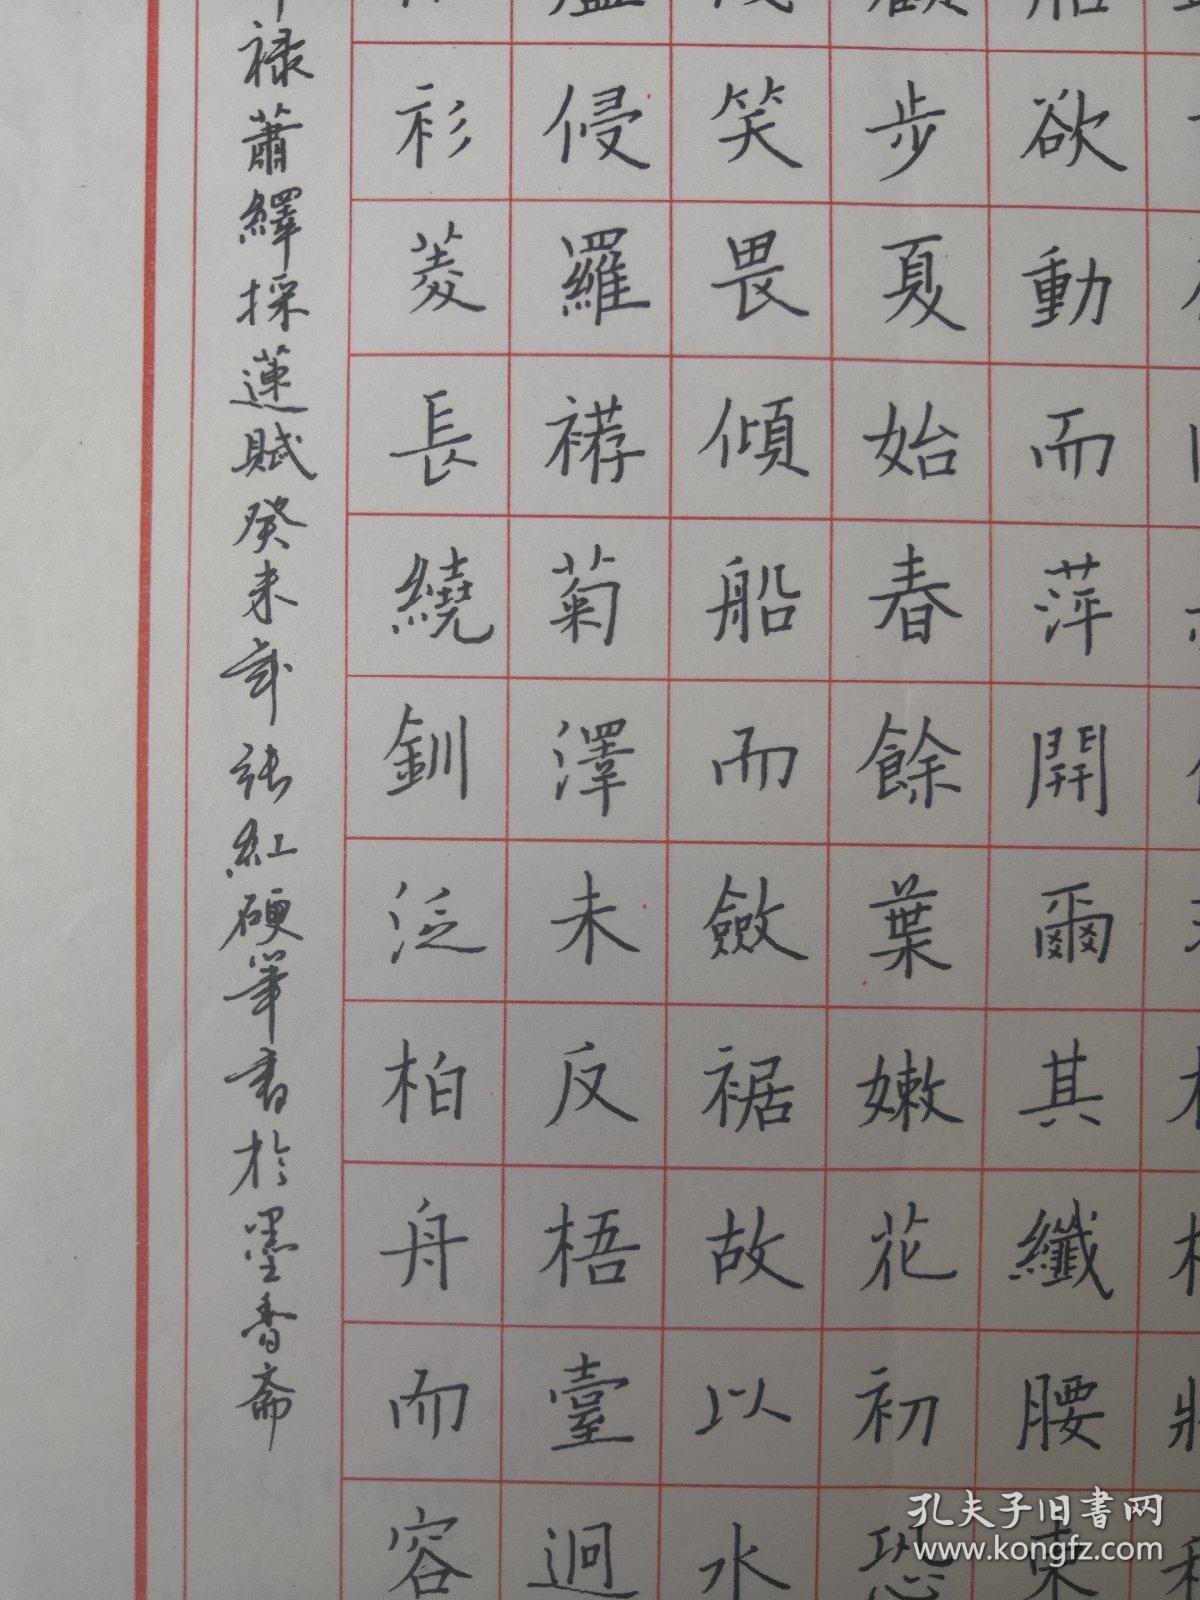 欲動而萍開爾其纖腰束
步夏始春餘葉嫩花初恐
笑畏傾船而斂裾故以水
侵羅襟菊澤未反梧臺迥
衫菱長繞釧泛柏舟而容
祿蕭繹採蓮賦癸未年張紅硬筆書於墨香齋
孔夫子旧書网
www.kongfz.com